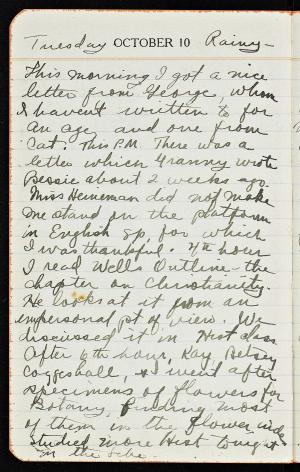 Tuesday OCTOBER 10 Rainy-
This morning I got a nice
letter from George, whom
I havent written to for
an age, and one from
Cat. This P.M. There was a
letter which Granny wrote
Bessie about 2 weeks ago.
Miss Heineman did not make
me stand on the platform
in English sp, for which
I was thankful. 4th hour
I read Wells Outline - the
chapter on Christianity.
He looks at it from an
impersonal pt of view. We
discussed it in Hist class
After 6th hour, Kay, Betsey
Coggeshall, & I went after
specimens of flowers for
Botany, finding most
of them in the flower
studied more Hist tonight
in the Libe.